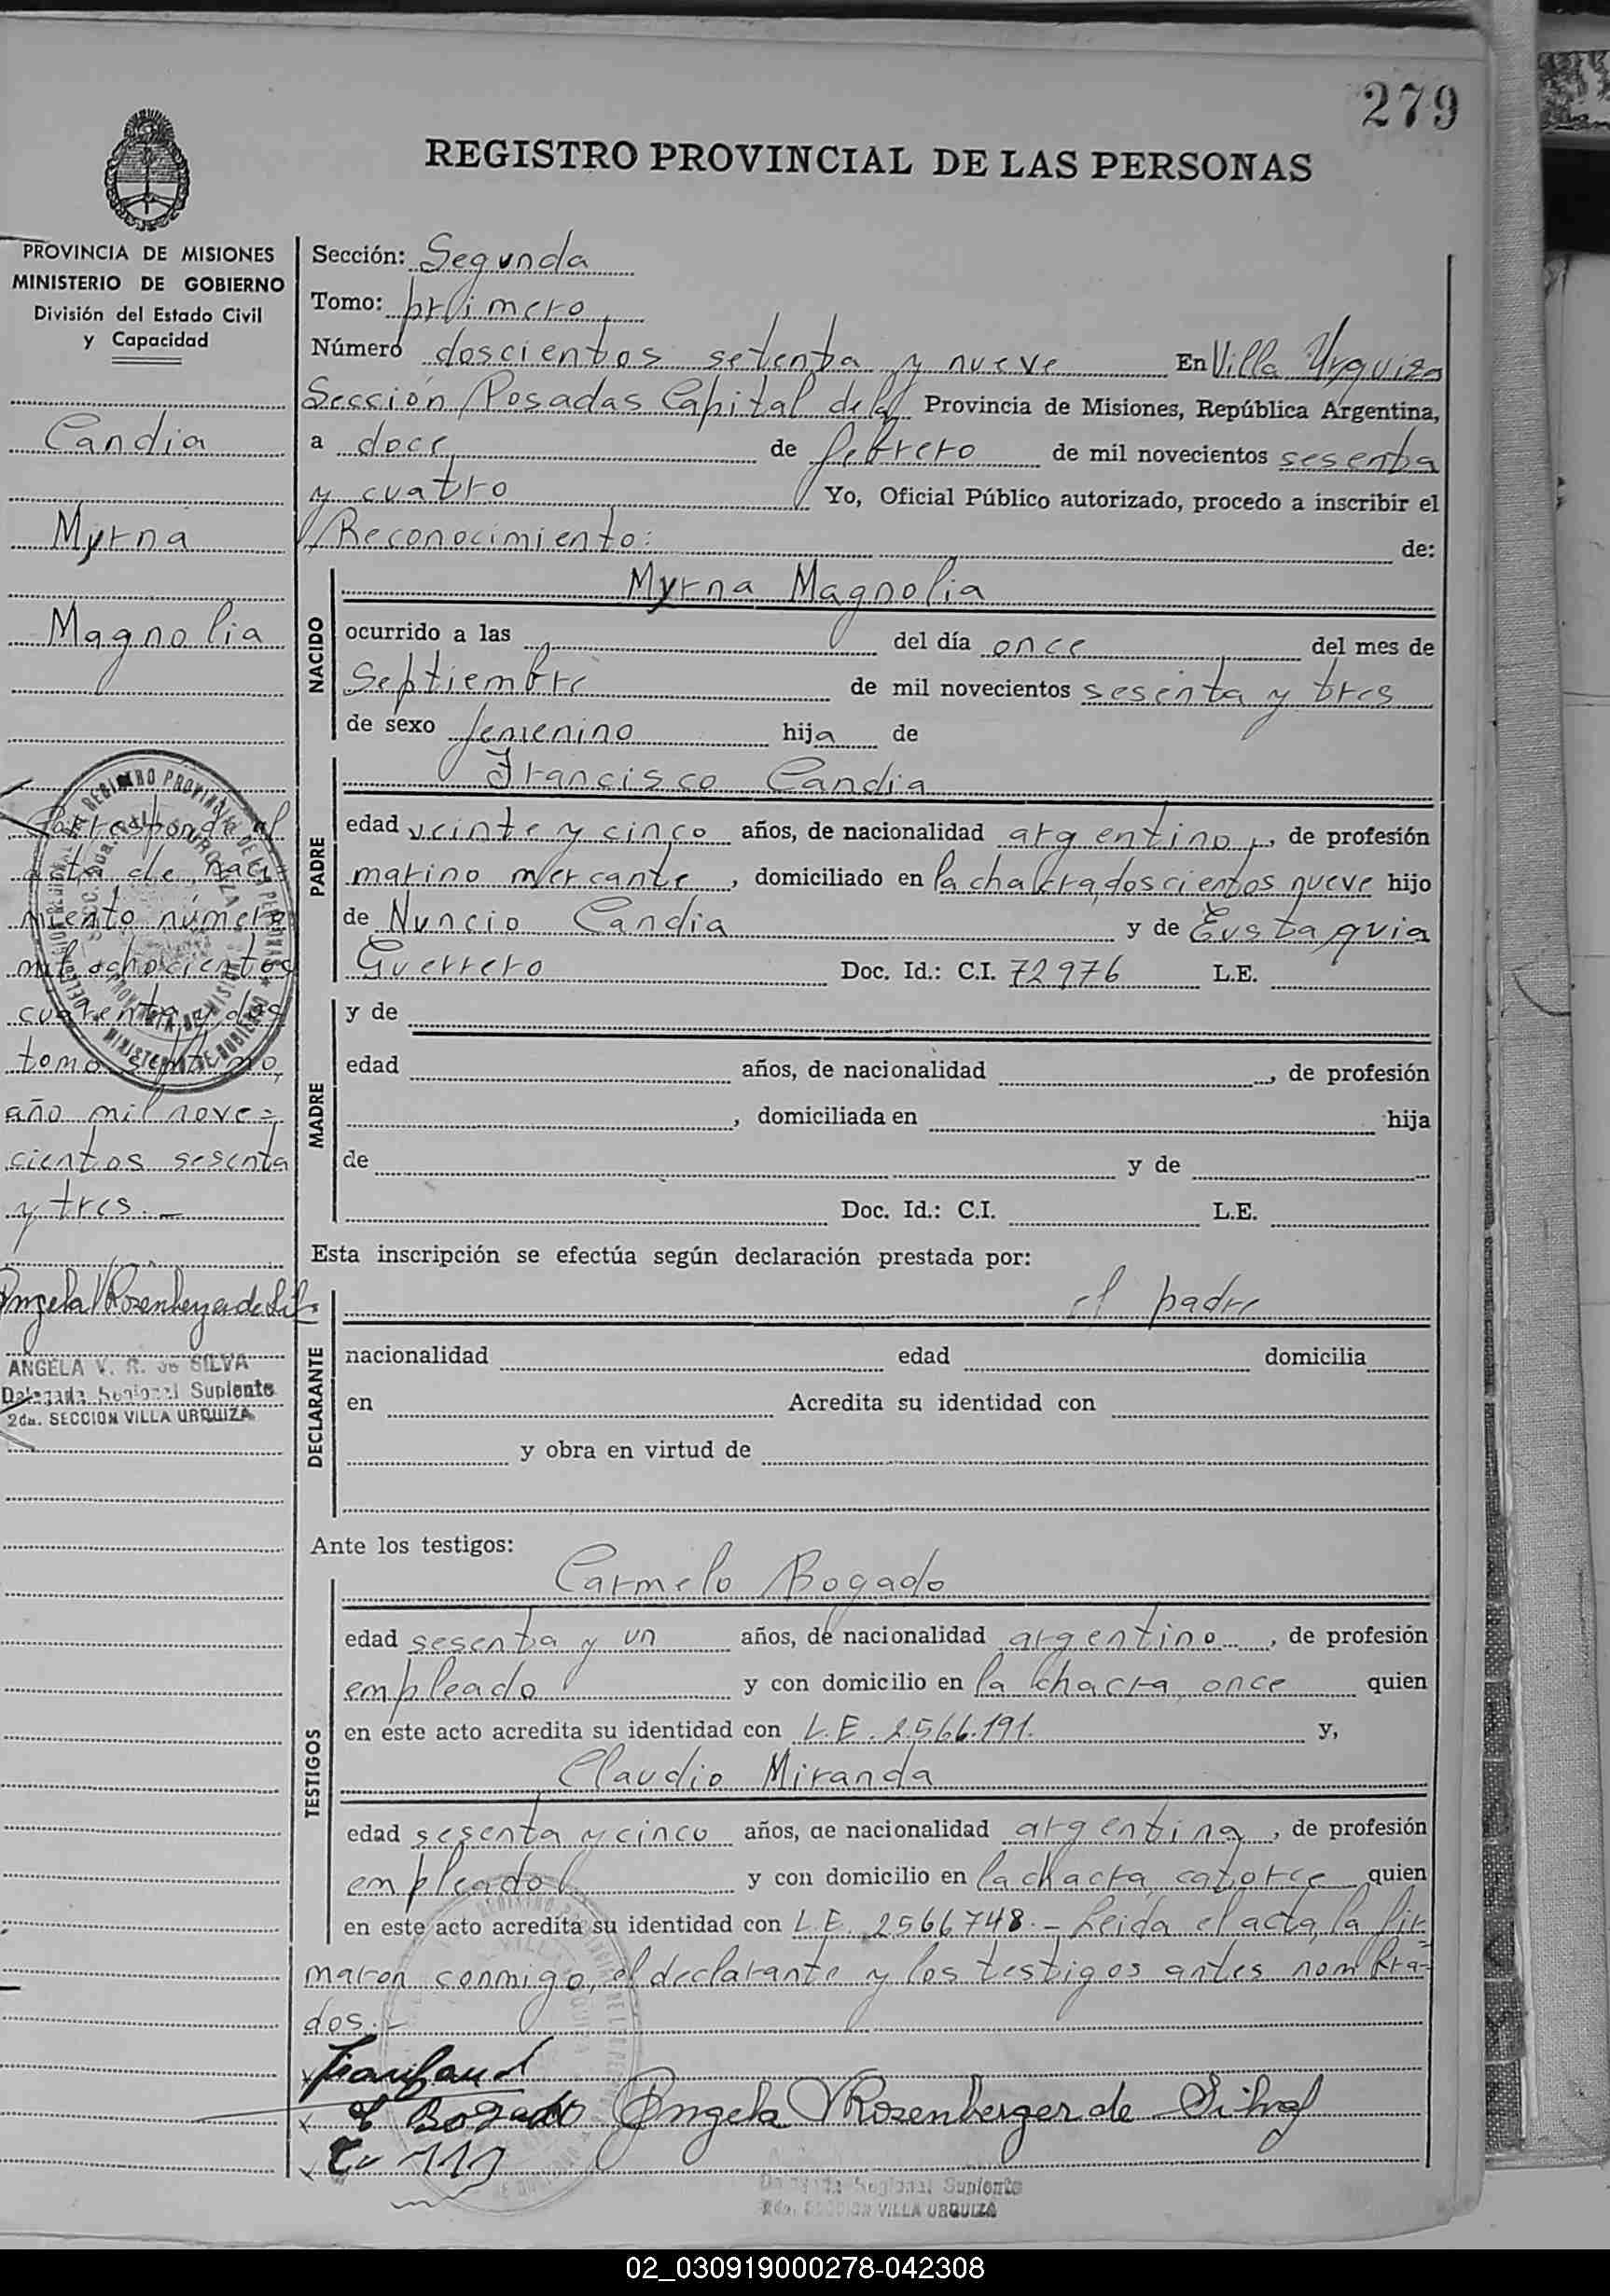 279
REGISTRO PROVINCIAL DE LAS PERSONAS
PROVINCIA DE MISIONES
MINISTERIO DE GOBIERNO
División del Estado Civil
y Capacidad
Candia
Myrna
Magnolia
Corresponde al
acta de naci=
miento número
mil ochocientos
cuarenta y dos
tomo septimo,
año mil nove=
cientos sesenta
y tres.—
Angela V Rosenberger de Sil
ANGELA V. R. de SILVA
Delegada Regional Suplente
2da. SECCION VILLA URQUIZA
Sección: Segunda
Tomo: primero
Número doscientos setenta y nueve En Villa Urquiza
Sección Posadas Capital de la Provincia de Misiones, República Argentina,
a doce de febrero de mil novecientos sesenta
y cuatro Yo, Oficial Público autorizado, procedo a inscribir el
Reconocimiento: de:
NACIDO
Myrna Magnolia
ocurrido a las del día once del mes de
Septiembre de mil novecientos sesenta y tres
de sexo femenino hija de
PADRE
Francisco Candia
edad veinte y cinco años, de nacionalidad argentino, de profesión
marino mercante, domiciliado en la chakra, doscientos nueve hijo
de Nuncio Candia y de Eustaquia
Guerrero Doc. Id.: C.I. 72976 L.E.
MADRE
y de
edad años, de nacionalidad , de profesión
, domiciliada en hija
de y de
Doc. Id.: C.I. L.E.
Esta inscripción se efectúa según declaración prestada por:
DECLARANTE
el padre
nacionalidad edad domicilia
en Acredita su identidad con
y obra en virtud de
Ante los testigos:
TESTIGOS
Carmelo Bogado
edad sesenta y un años, de nacionalidad argentino, de profesión
empleado y con domicilio en la chacra, once quien
en este acto acredita su identidad con L.E. 2.566.191. y,
Claudio Miranda
edad sesenta y cinco años, de nacionalidad argentina, de profesión
empleado y con domicilio en la chacra, catorce quien
en este acto acredita su identidad con L.E. 2566748.- Leida el acta, la fir=
maron conmigo, el declarante y los testigos antes nombra=
dos.-
Bogado Angela V Rosenberger de Silva
Delegada Regional Suplente
2da. SECCION VILLA URQUIZA
02_030919000278-042308